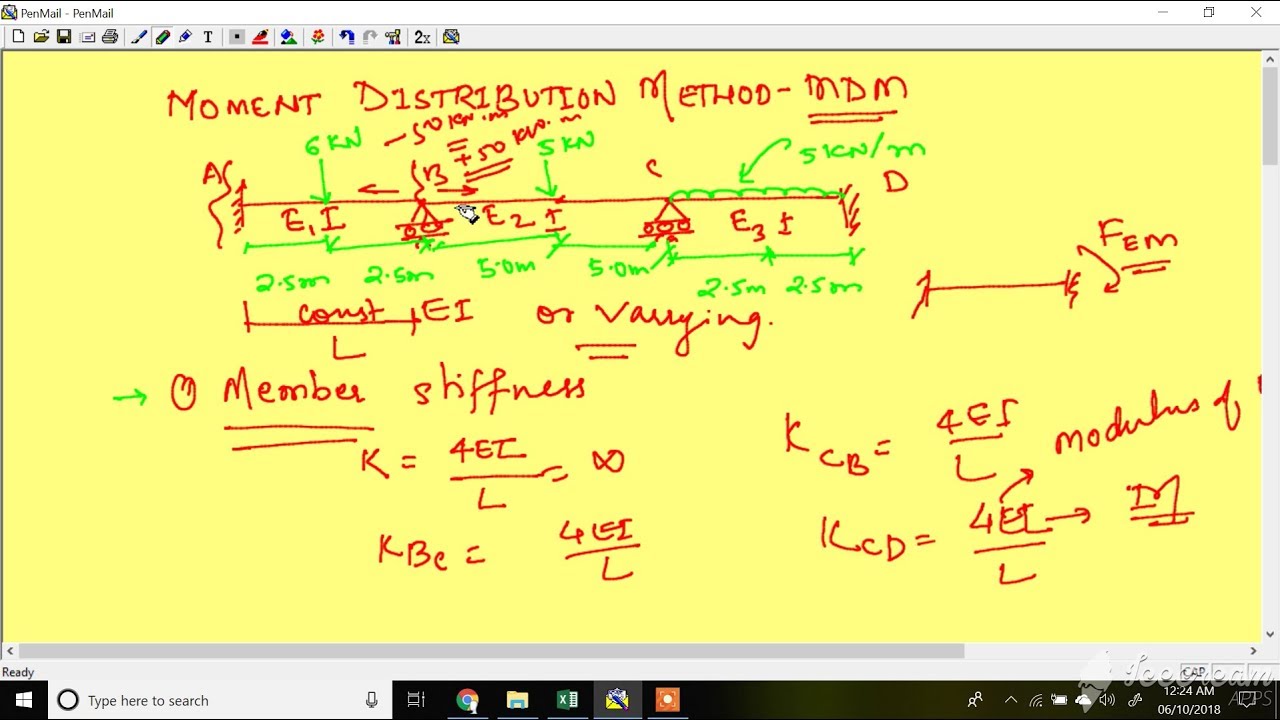 PenMail - PenMail
T
2x
MOMENT DISTRIBUTION METHOD - MDM
- 50 KN.m
= +50 KN.m
6 KN
5 KN
5 KN/m
A
B
C
D
E1 I
E2 I
E3 I
2.5m 2.5m 5.0m 5.0m 2.5m 2.5m
FEM
const EI or varying.
L
→ ① Member stiffness
K = 4EI/L = ∞
KCB = 4EI/L
modulus of
KBC = 4EI/L
KCD = 4EI/L → IM
Ready
CAP
Type here to search
12:24 AM
06/10/2018
IceCream
APPS